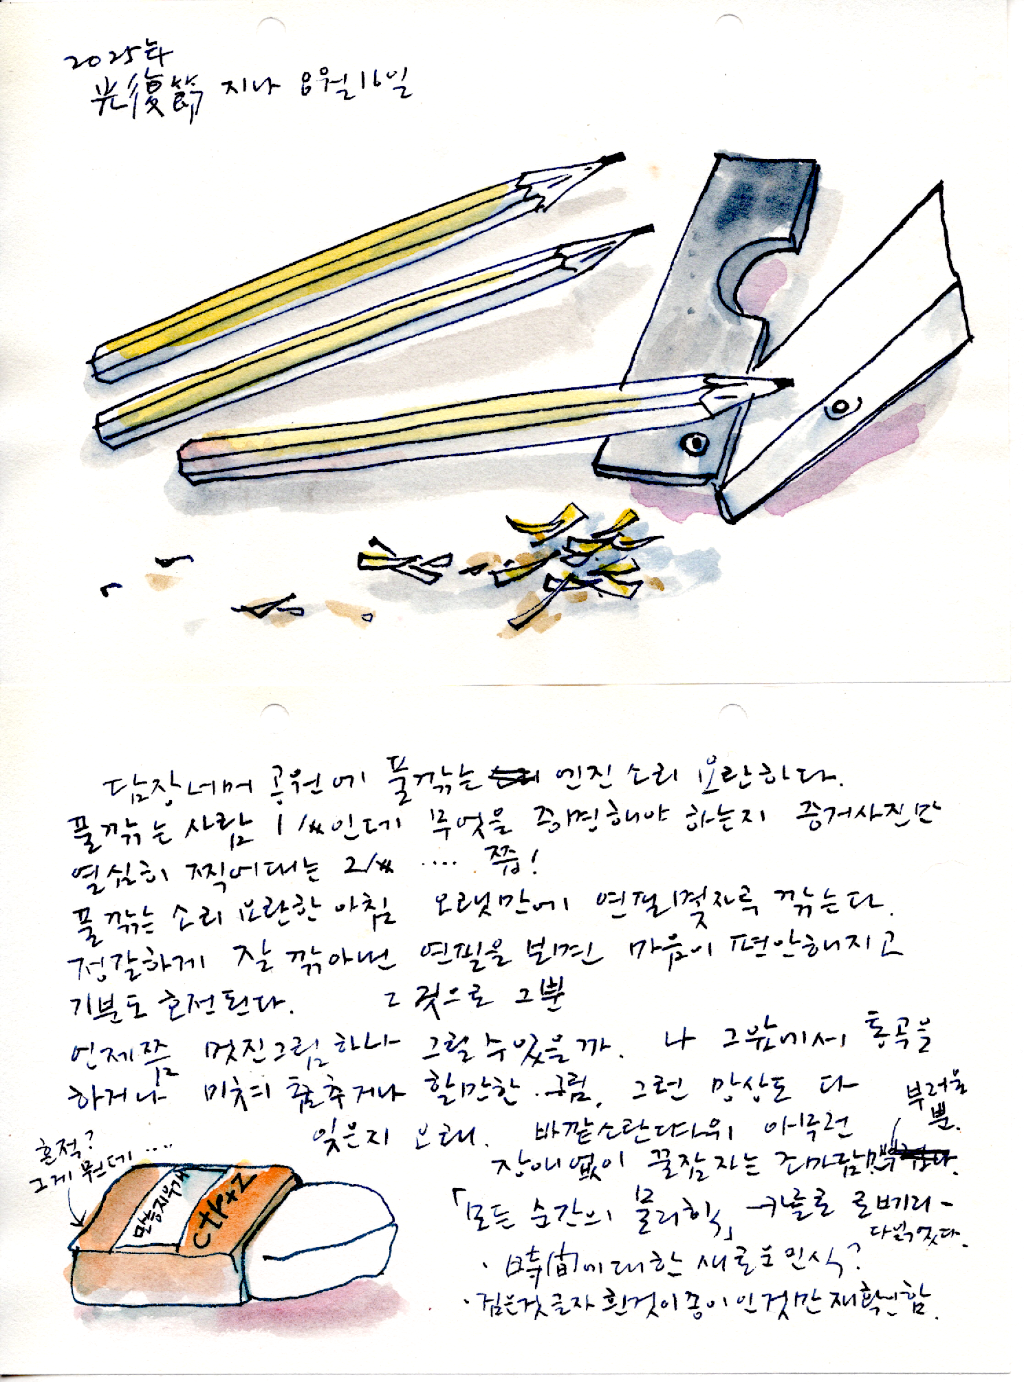 2025年
光復節 지나 8월 16일
담장너머 공원에 풀깎는 엔진소리 요란하다.
풀깎는 사람 1人인데 무엇을 증명해야 하는지 증거사진만
열심히 찍어대는 2人 .... 쯥!
풀깎는 소리 요란한 아침 오랫만에 연필 몇자루 깎는다.
정갈하게 잘 깎아낸 연필을 보면 마음이 편안해지고
기분도 호전된다. 그것으로 그뿐
언제쯤 멋진그림하나 그릴 수 있을까. 나 그앞에서 통곡을
하거나 미친듯 춤추거나 할만한 그림. 그런 망상도 다
잊은지 오래. 바깥소란따위 아무런
장애없이 꿀잠자는 조마담
부러울
뿐.
흔적?
그게 뭔데 ....
만능지우개
Ctrl+Z
「모든 순간의 물리학」 - 카를로 로베리 -
다읽었다.
· 時間에 대한 새로운 인식?
· 검은것 글자 흰것이 종이인것만 재확인함.